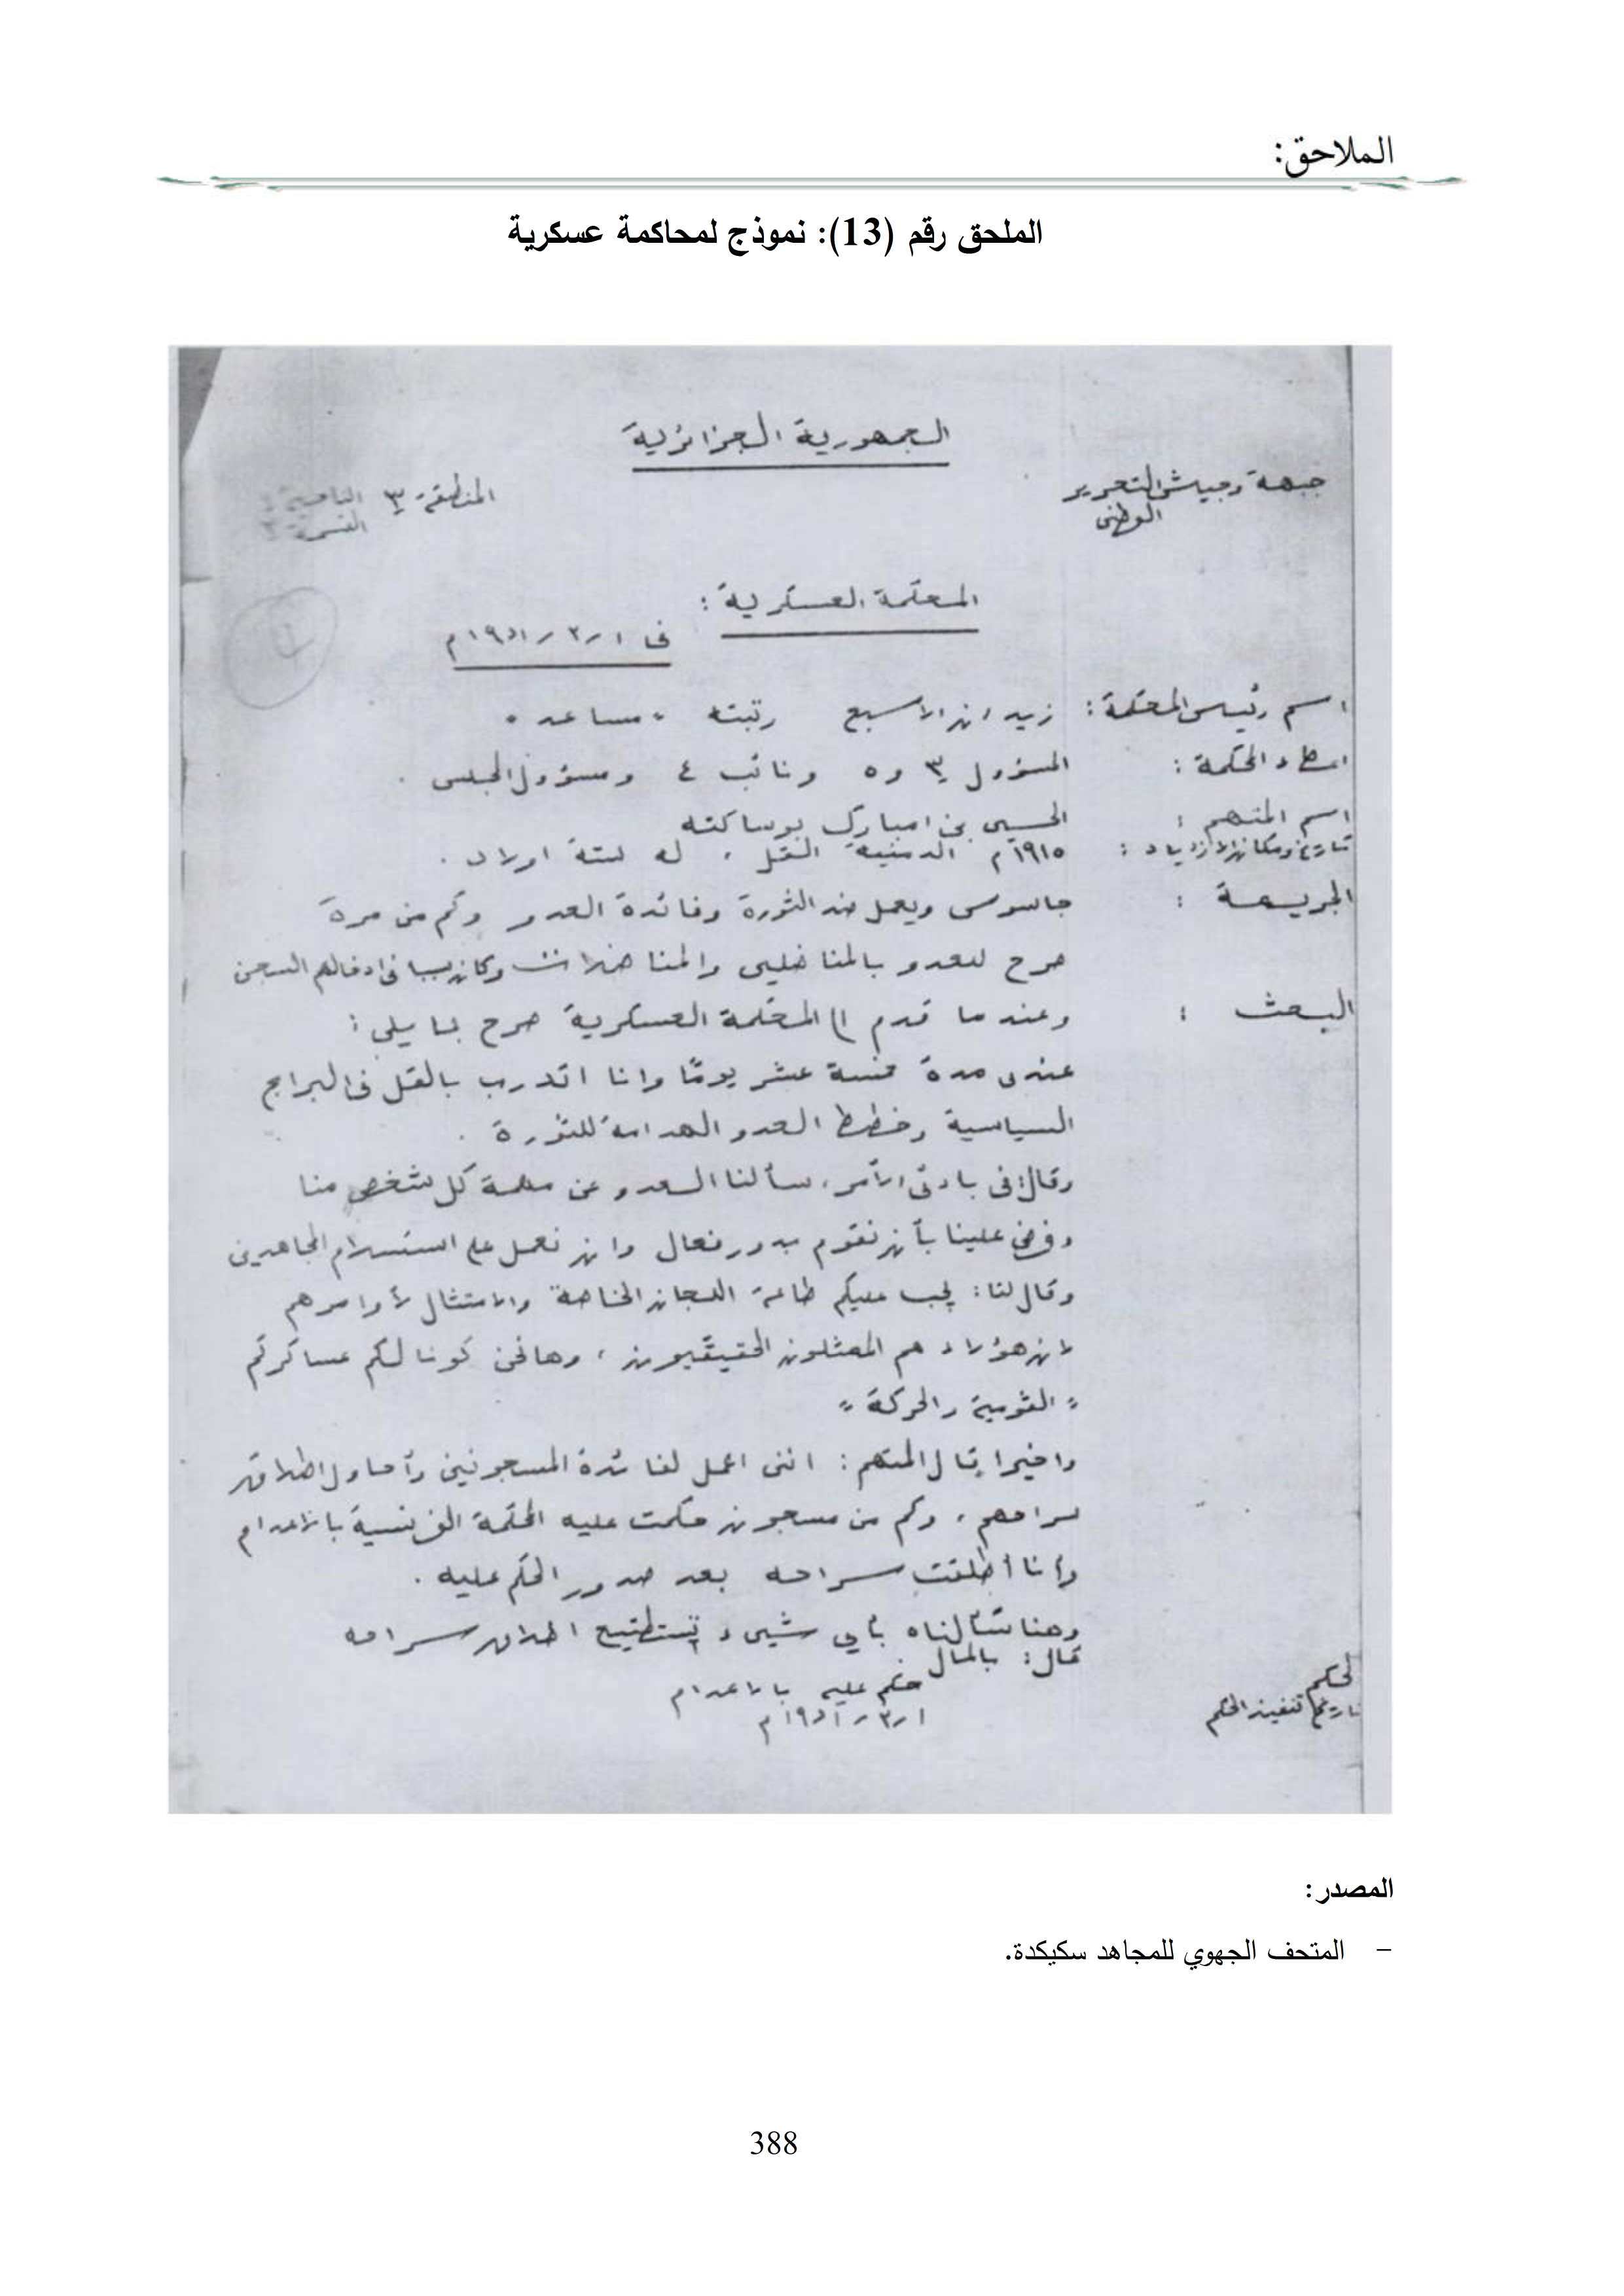 الملاحق:
الملحق رقم (13): نموذج لمحاكمة عسكرية
الجمهورية الجزائرية
جبهة وجيش التحرير
الوطني
المنطقة ٣ الناحية
القسمة
المحكمة العسكرية:
في ١ر٣ر
اسم رئيس المحكمة: زيدان الاسبع رتبته ، مساعد .
اعضاء المحكمة: المسؤول ٣ و٥ ونائب ٤ ومسؤول المجلس .
اسم المتهم: الحسين بن امبارك بوساكته
تاريخ ومكان الازدياد: ١٩١٥م القل ، له ستة اولاد .
الجريمة: جاسوس ويعمل ضد الثورة وفائدة العدو وكم من مرة
صرح للعدو بالمناضلين والمناضلات وكان سببا في ادخالهم السجن
البحث: وعندما قدم الى المحكمة العسكرية صرح بما يلي:
عندى مدة خمسة عشر يومًا وانا اتدرب بالقل في البرامج
السياسية وخطط العدو الهدامة للثورة .
وقال: في بادئ الأمر، سألنا العدو عن مهمة كل شخص منا
وفرض علينا بأن نقوم بدور فعال وان نعمل على استسلام المجاهدين
وقال لنا: يجب عليكم طاعة اللجان الخاصة والامتثال لأوامرهم
لان هؤلاء هم الممثلون الحقيقيون ، وها نحن كونا لكم عساكركم
" القومية والحركة "
واخيرا قال المتهم: انني اعمل لفائدة المسجونين وأحاول اطلاق
سراحهم، وكم من مسجون حكمت عليه المحكمة الفرنسية بالاعدام
وأنا أطلقت سراحه بعد صدور الحكم عليه .
وهنا سألناه بأي شيىء تستطيع اطلاق سراحه
قال: بالمال
الحكم حكم عليه بالاعدام
تاريخ تنفيذ الحكم ١ر٣ر
المصدر:
- المتحف الجهوي للمجاهد سكيكدة.
388